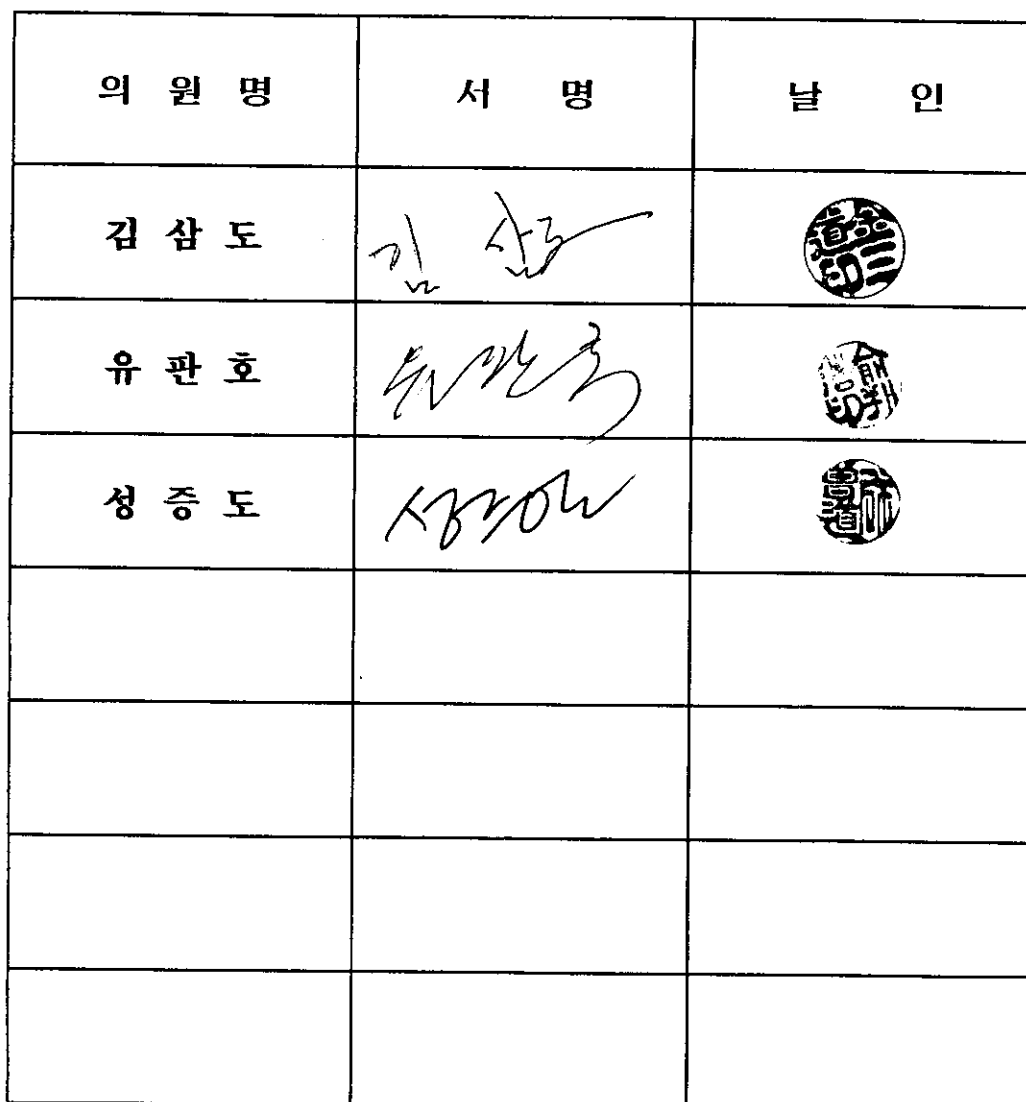 의 원 명 서 명 날 인
김 삼 도 김 삼도
유 판 호 유판호
성 증 도